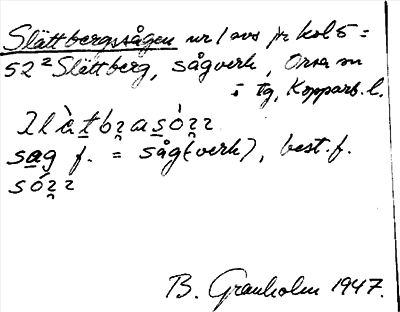 Slättbergssågen nr 1 avs fr kol 5 =
52² Slättberg, sågverk, Orsa sn
i tg, Kopparb. l.
sag f. = såg(verk), best. f.
B. Granholm 1947.